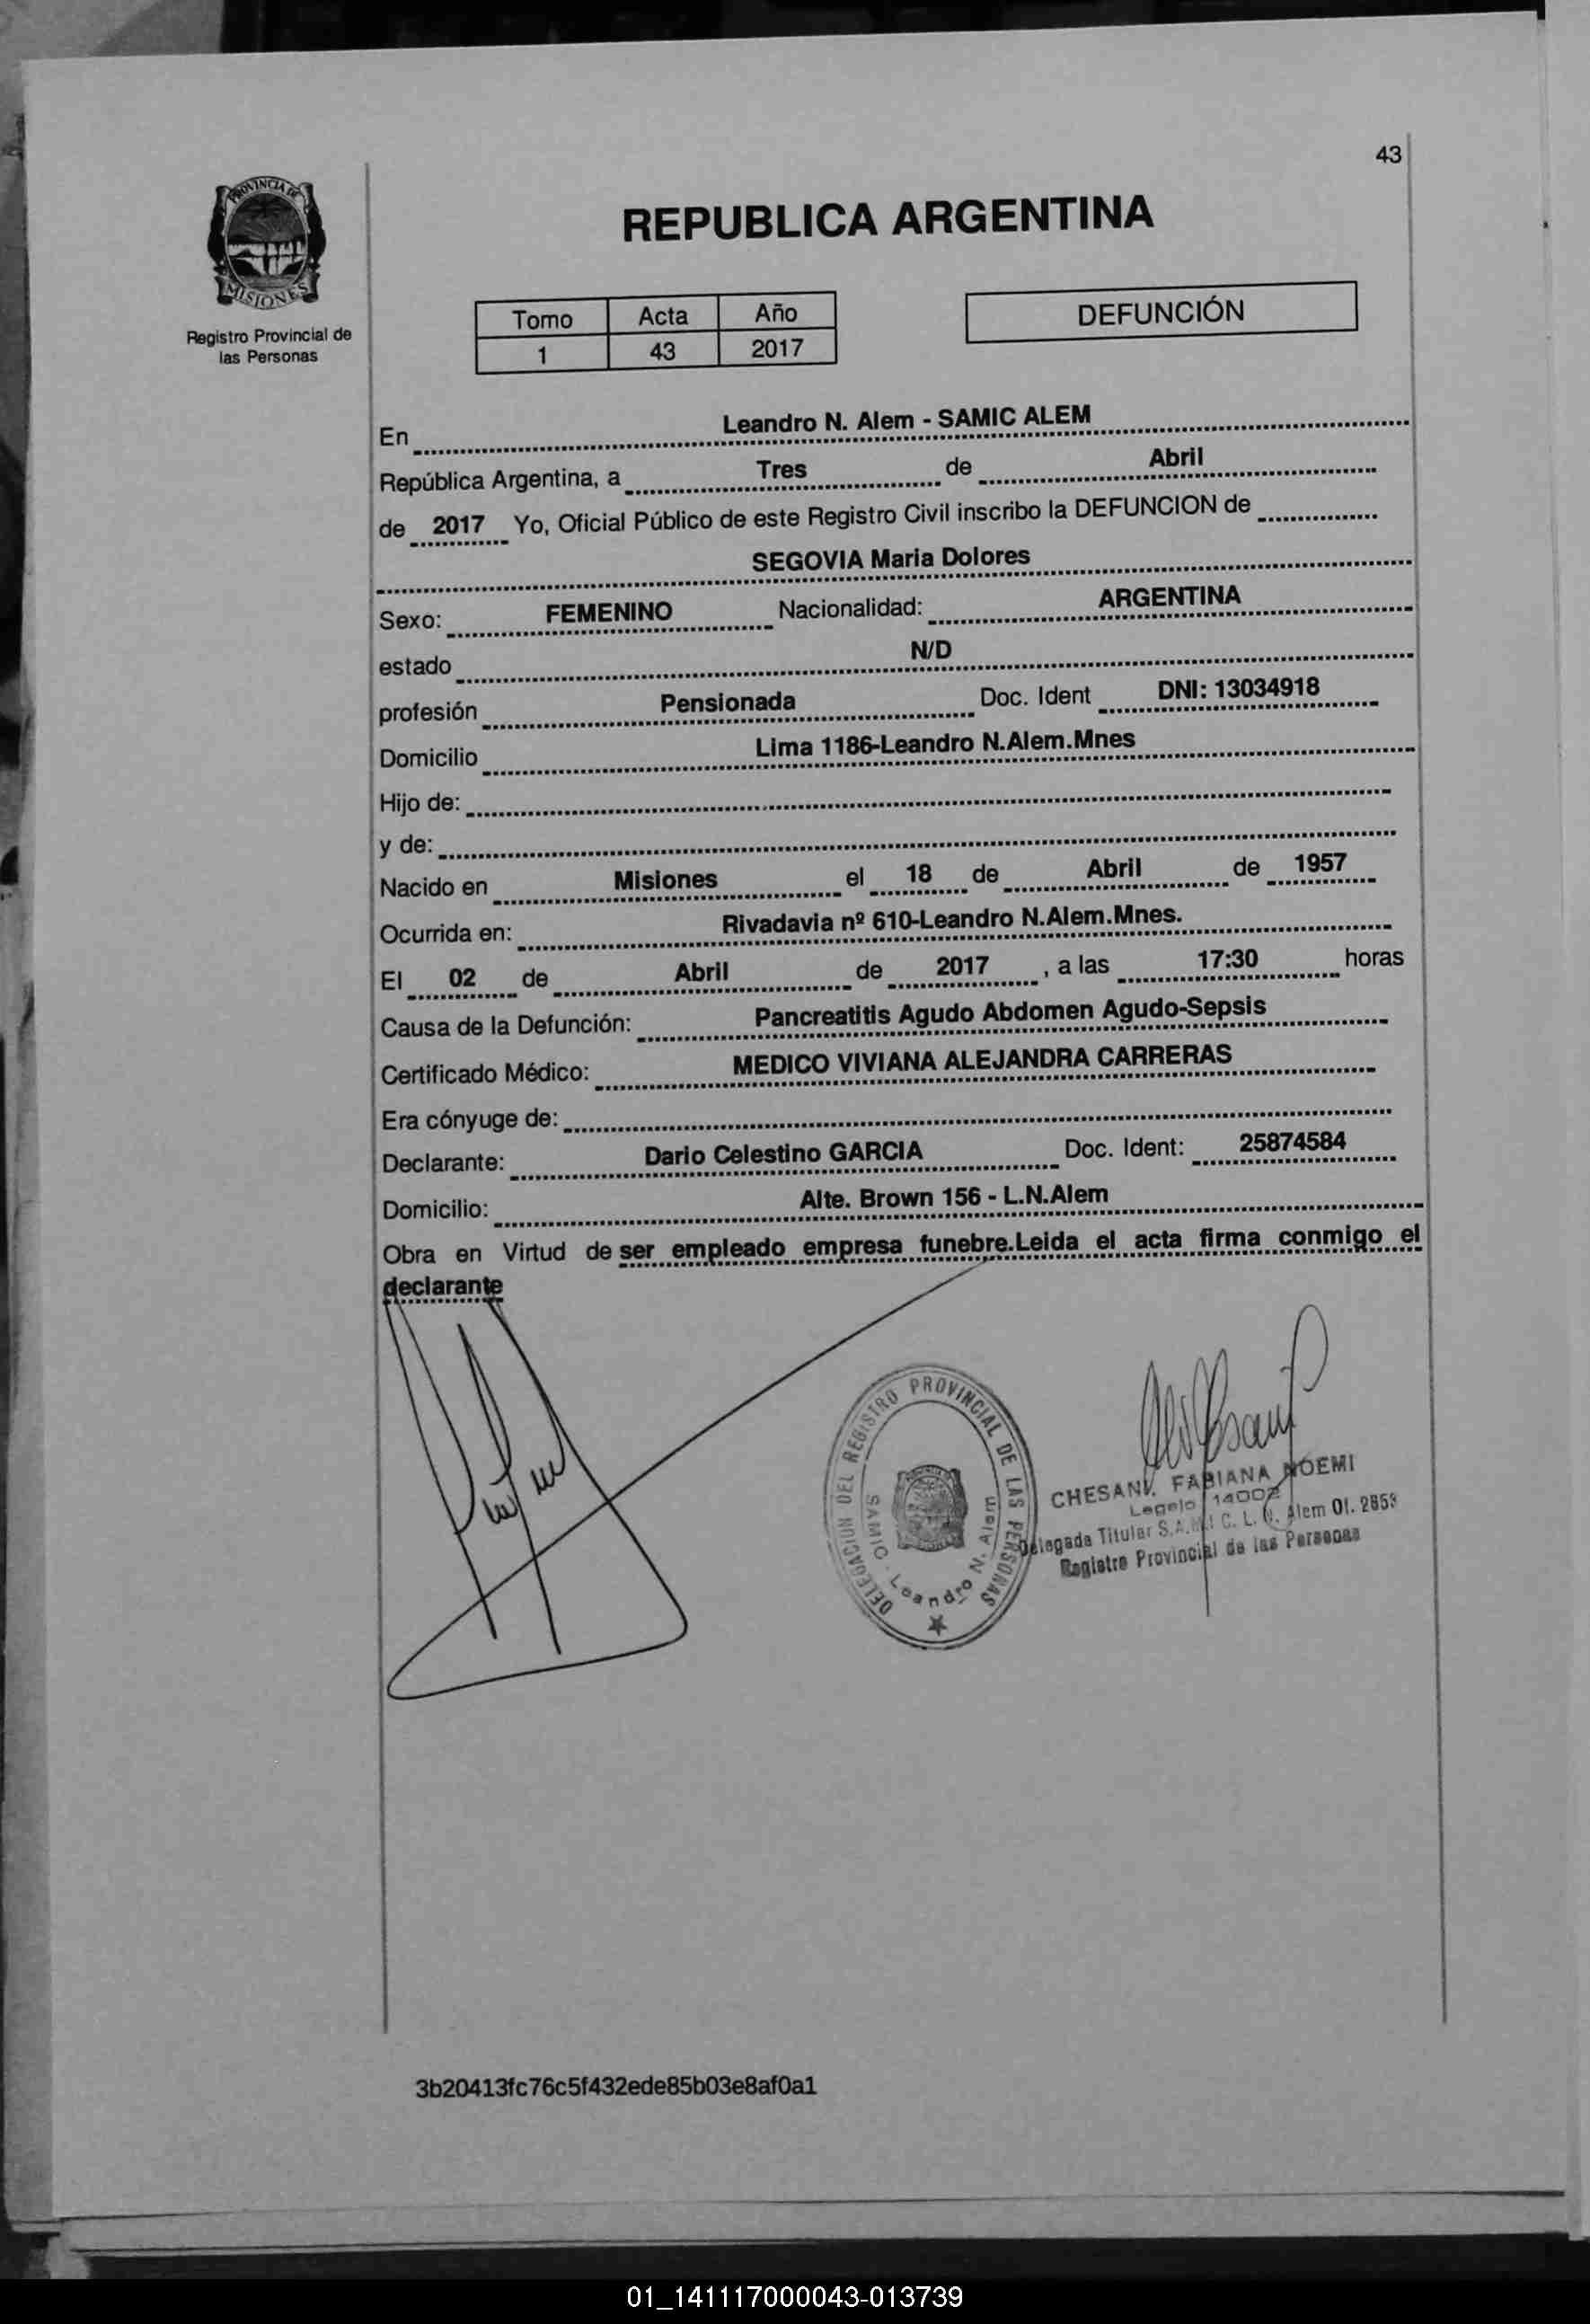 43
PROVINCIA DE
MISIONES
Registro Provincial de
las Personas
REPUBLICA ARGENTINA
Tomo Acta Año
1 43 2017
DEFUNCIÓN
En Leandro N. Alem - SAMIC ALEM
República Argentina, a Tres de Abril
de 2017 Yo, Oficial Público de este Registro Civil inscribo la DEFUNCION de
SEGOVIA Maria Dolores
Sexo: FEMENINO Nacionalidad: ARGENTINA
estado N/D
profesión Pensionada Doc. Ident DNI: 13034918
Domicilio Lima 1186-Leandro N.Alem.Mnes
Hijo de:
y de:
Nacido en Misiones el 18 de Abril de 1957
Ocurrida en: Rivadavia nº 610-Leandro N.Alem.Mnes.
El 02 de Abril de 2017 , a las 17:30 horas
Causa de la Defunción: Pancreatitis Agudo Abdomen Agudo-Sepsis
Certificado Médico: MEDICO VIVIANA ALEJANDRA CARRERAS
Era cónyuge de:
Declarante: Dario Celestino GARCIA Doc. Ident: 25874584
Domicilio: Alte. Brown 156 - L.N.Alem
Obra en Virtud de ser empleado empresa funebre.Leida el acta firma conmigo el
declarante
DELEGACION DEL REGISTRO PROVINCIAL DE LAS PERSONAS
SAMIC - Leandro N. Alem
CHESANI. FABIANA NOEMI
Legajo 14002
Delegada Titular S.A.M.I C. L. N. Alem Of.
Registro Provincial de las Personas
3b20413fc76c5f432ede85b03e8af0a1
01_141117000043-013739